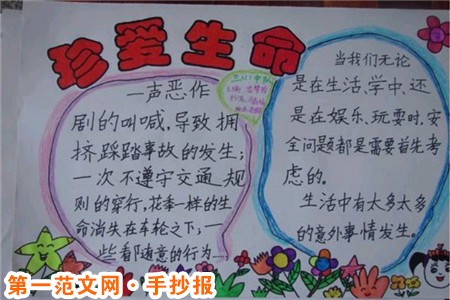 珍爱生命
一声恶作
剧的叫喊,导致拥
挤踩踏事故的发生;
一次不遵守交通规
则的穿行,花季一样的生
命消失在车轮之下;一
些看却随意的行为……
当我们无论
是在生活,学中,还
是在娱乐、玩耍时,安
全问题都是需要首先考
虑的。
生活中有太多太多
的意外事情发生。
第一范文网·手抄报